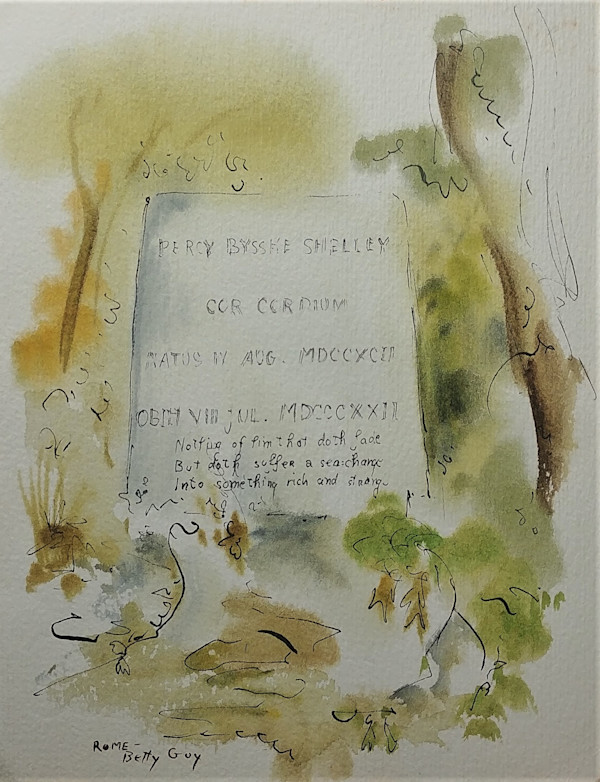 PERCY BYSSHE SHELLEY
COR CORDIUM
NATUS IV AUG. MDCCXCII
OBIIT VIII JUL. MDCCCXXII
Nothing of him that doth fade
But doth suffer a sea-change
Into something rich and strange
ROME-
Betty Guy